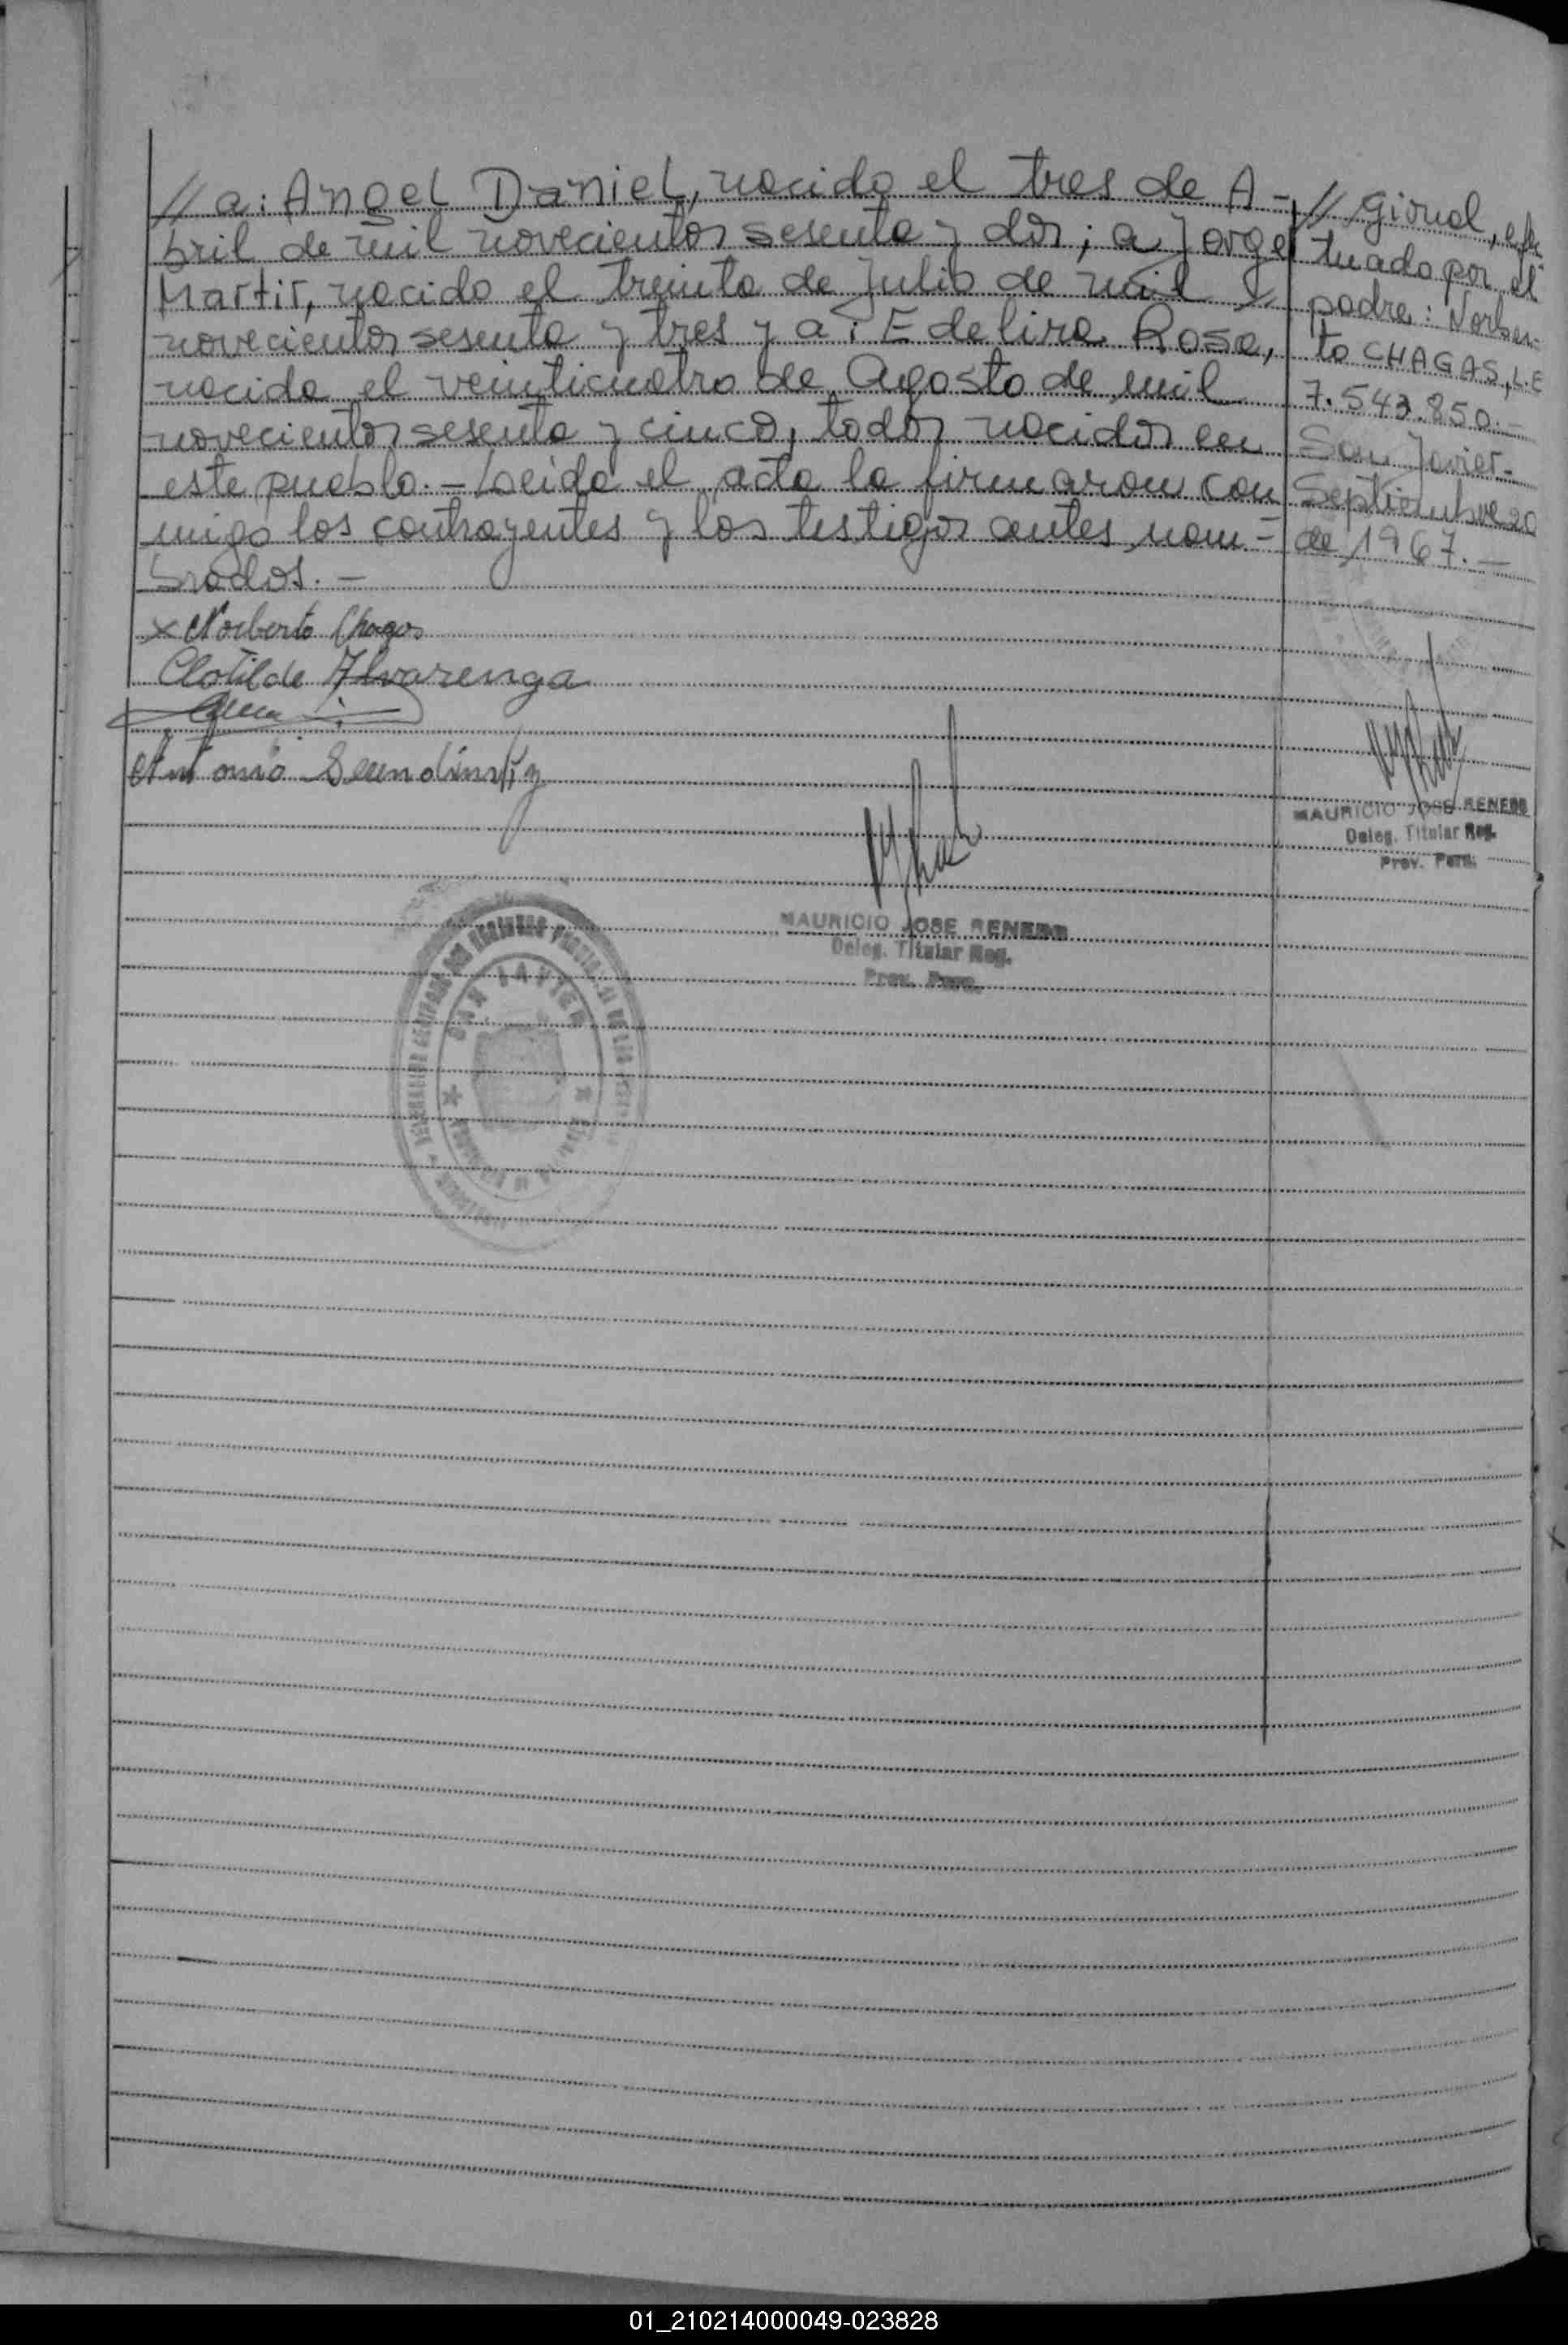 // a: Angel Daniel, nacido el tres de A-
bril de mil novecientos sesenta y dos; a Jorge
Martir, nacido el treinta de Julio de mil
novecientos sesenta y tres y a: Edelira Rosa,
nacida el veinticuatro de Agosto de mil
novecientos sesenta y cinco, todos nacidos en
este pueblo.- Leida el acta la firmaron con
migo los contrayentes y los testigos antes nom-
brados.-
x Norberto Chagas
Clotilde Alvarenga
Antonio
MAURICIO JOSE RENERO
Deleg. Titular Reg.
Prov. Pers.
SAN JAVIER
// ginal, efec
tuado por el
padre: Norber-
to CHAGAS, L.E
7.543.850.-
San Javier-
Septiembre 20
de 1967.-
MAURICIO JOSE RENERO
Deleg. Titular Reg.
Prov. Pers.
01_210214000049-023828